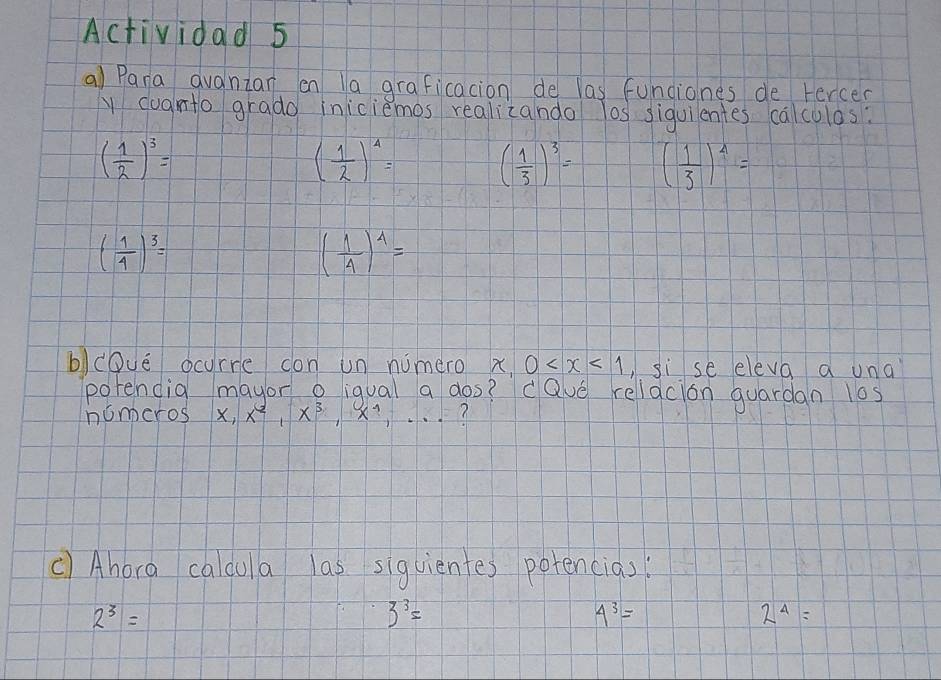 Actividad 5
a) Para avanzar en la graficacion de las funciones de tercer
y cuarto grado iniciémos realizando los siguientes cálculos:
(1/2)³= (1/2)⁴= (1/3)³= (1/3)⁴=
(1/4)³= (1/4)⁴=
b) ¿Qué ocurre con un número x, 0<x<1, si se eleva a una
potencia mayor o igual a dos? ¿Qué relación guardan los
números x, x², x³, x⁴, ...?
c) Ahora calcula las siguientes potencias:
2³= 3³= 4³= 2⁴=